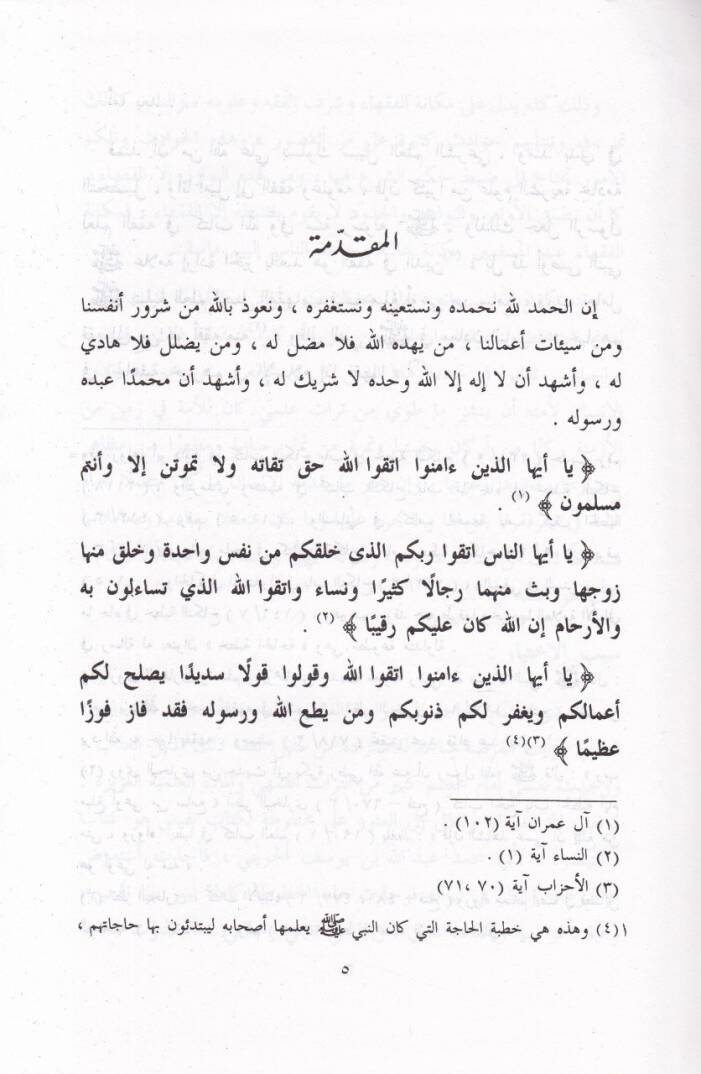 المقدّمة
إن الحمد لله نحمده ونستعينه ونستغفره ، ونعوذ بالله من شرور أنفسنا
ومن سيئات أعمالنا ، من يهده الله فلا مضل له ، ومن يضلل فلا هادي
له ، وأشهد أن لا إله إلا الله وحده لا شريك له ، وأشهد أن محمدًا عبده
ورسوله .
﴿ يا أيها الذين ءامنوا اتقوا الله حق تقاته ولا تموتن إلا وأنتم
مسلمون ﴾ (١) .
﴿ يا أيها الناس اتقوا ربكم الذى خلقكم من نفس واحدة وخلق منها
زوجها وبث منهما رجالًا كثيرًا ونساء واتقوا الله الذي تساءلون به
والأرحام إن الله كان عليكم رقيبًا ﴾ (٢) .
﴿ يا أيها الذين ءامنوا اتقوا الله وقولوا قولًا سديدًا يصلح لكم
أعمالكم ويغفر لكم ذنوبكم ومن يطع الله ورسوله فقد فاز فوزًا
عظيمًا ﴾ (٣)(٤)
(١) آل عمران آية (١٠٢) .
(٢) النساء آية (١) .
(٣) الأحزاب آية (٧٠ ،٧١)
١(٤) وهذه هي خطبة الحاجة التي كان النبي ﷺ يعلمها أصحابه ليبتدئون بها حاجاتهم ،
٥